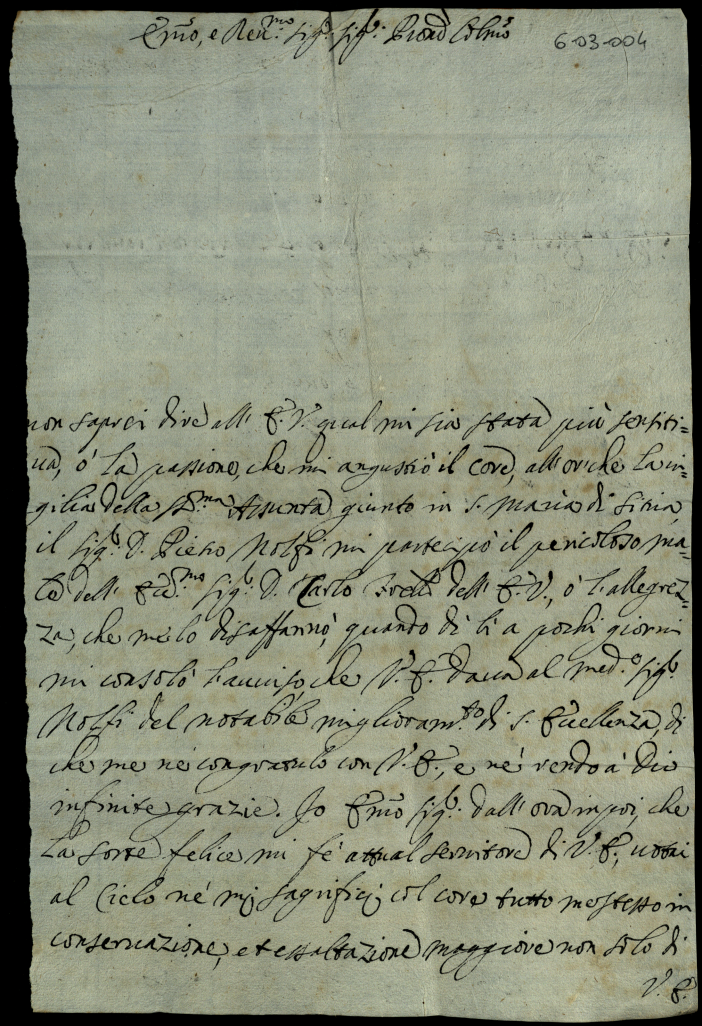 Em̃o, e Reu.mo Sig.r Sig.r Pron̄ Colm̃o
6-03-004
non saprei dire all' E. V. qual mi sia stata più sensiti=
ua, ò la passione, che mi angustiò il core, all'or che la ui=
gilia della SS.ma Assunta giunto in S. Maria di Sitria
il Sig.r D. Pietro Nolfi mi partecipò il pericoloso ma=
le dell' Ecc.mo Sig.r D. Carlo dell' E. V., ò l'allegrez=
za, che me lo disaffannò, quando di lì a pochi giorni
mi consolò l'auuiso, che V. E. daua al med.o Sig.r
Nolfi del notabile miglioram.to di S. Eccellenza, di
che me nè congratulo con V. E., e nè rendo à Dio
infinite grazie. Io Em̃o Sig.r dall' ora in poi, che
la sorte felice mi fè attual seruitore di V. E., uotai
al Cielo nè mij sagrificij col core tutto me stesso in
conseruazione, et essaltazione maggiore non solo di
V. E.